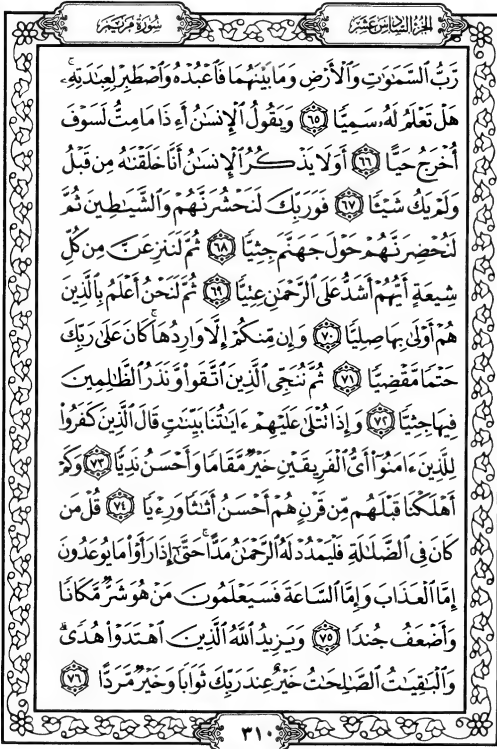 سُورَةُ مَرْيَمَ الجُزْءُ السَّادِسَ عَشَرَ
رَّبُّ ٱلسَّمَٰوَٰتِ وَٱلْأَرْضِ وَمَا بَيْنَهُمَا فَٱعْبُدْهُ وَٱصْطَبِرْ لِعِبَٰدَتِهِۦۚ
هَلْ تَعْلَمُ لَهُۥ سَمِيًّا ٦٥ وَيَقُولُ ٱلْإِنسَٰنُ أَءِذَا مَا مِتُّ لَسَوْفَ
أُخْرَجُ حَيًّا ٦٦ أَوَلَا يَذْكُرُ ٱلْإِنسَٰنُ أَنَّا خَلَقْنَٰهُ مِن قَبْلُ
وَلَمْ يَكُ شَيْـًٔا ٦٧ فَوَرَبِّكَ لَنَحْشُرَنَّهُمْ وَٱلشَّيَٰطِينَ ثُمَّ
لَنُحْضِرَنَّهُمْ حَوْلَ جَهَنَّمَ جِثِيًّا ٦٨ ثُمَّ لَنَنزِعَنَّ مِن كُلِّ
شِيعَةٍ أَيُّهُمْ أَشَدُّ عَلَى ٱلرَّحْمَٰنِ عِتِيًّا ٦٩ ثُمَّ لَنَحْنُ أَعْلَمُ بِٱلَّذِينَ
هُمْ أَوْلَىٰ بِهَا صِلِيًّا ٧٠ وَإِن مِّنكُمْ إِلَّا وَارِدُهَاۚ كَانَ عَلَىٰ رَبِّكَ
حَتْمًا مَّقْضِيًّا ٧١ ثُمَّ نُنَجِّى ٱلَّذِينَ ٱتَّقَوا۟ وَّنَذَرُ ٱلظَّٰلِمِينَ
فِيهَا جِثِيًّا ٧٢ وَإِذَا تُتْلَىٰ عَلَيْهِمْ ءَايَٰتُنَا بَيِّنَٰتٍ قَالَ ٱلَّذِينَ كَفَرُوا۟
لِلَّذِينَ ءَامَنُوٓا۟ أَىُّ ٱلْفَرِيقَيْنِ خَيْرٌ مَّقَامًا وَأَحْسَنُ نَدِيًّا ٧٣ وَكَمْ
أَهْلَكْنَا قَبْلَهُم مِّن قَرْنٍ هُمْ أَحْسَنُ أَثَٰثًا وَرِءْيًا ٧٤ قُلْ مَن
كَانَ فِى ٱلضَّلَٰلَةِ فَلْيَمْدُدْ لَهُ ٱلرَّحْمَٰنُ مَدًّاۚ حَتَّىٰٓ إِذَا رَأَوْا۟ مَا يُوعَدُونَ
إِمَّا ٱلْعَذَابَ وَإِمَّا ٱلسَّاعَةَ فَسَيَعْلَمُونَ مَنْ هُوَ شَرٌّ مَّكَانًا
وَأَضْعَفُ جُندًا ٧٥ وَيَزِيدُ ٱللَّهُ ٱلَّذِينَ ٱهْتَدَوْا۟ هُدًىۗ
وَٱلْبَٰقِيَٰتُ ٱلصَّٰلِحَٰتُ خَيْرٌ عِندَ رَبِّكَ ثَوَابًا وَخَيْرٌ مَّرَدًّا ٧٦
٣١٠